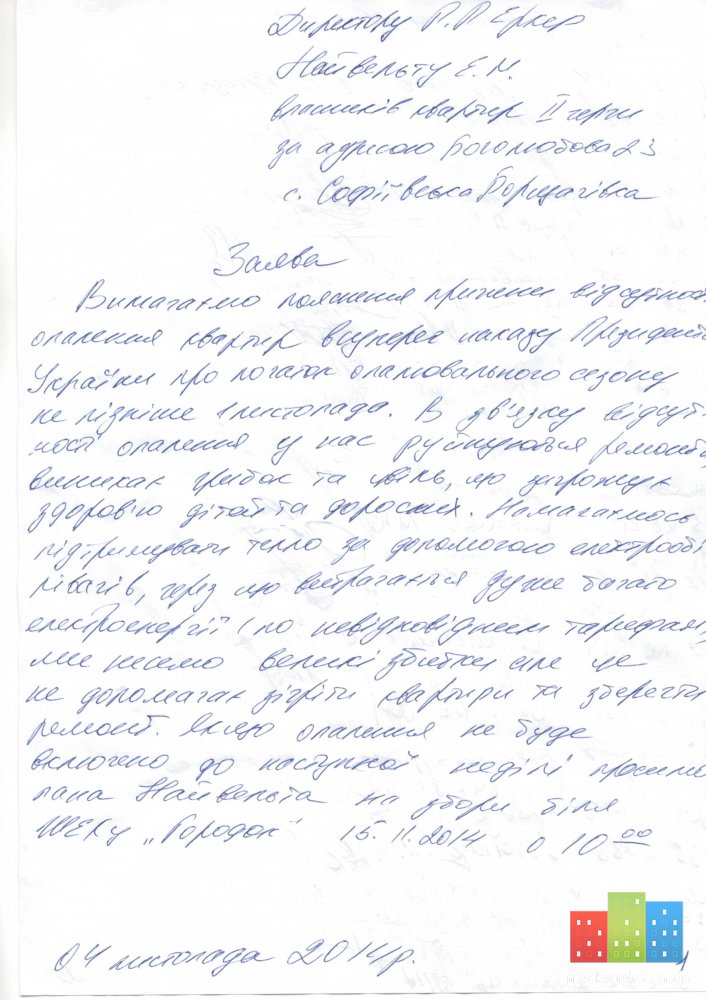 Директору Р.П Еркер
Найвельту Е.М.
власників квартир II черги
за адресою Боголюбова 23
с. Софіївська Борщагівка
Заява
Вимагаємо пояснення причини відсутнос
опалення квартир всупереч наказу Президент
України про початок опалювального сезону
не пізніше 1 листопада. В зв'язку відсут-
ності опалення у нас руйнуються ремонти,
виникає грибок та цвіль, що загрожує
здоров'ю дітой та дорослих. Намагаємось
підтримувати тепло за допомогою електрообі
грівачів, через що витрачається дуже багато
електроенергії (по невідповідним тарифам),
ми несемо великі збитки але це
не допомагає зігріти квартири та зберегти
ремонт. Якщо опалення не буде
включено до наступної неділі просимо
пана Найвельта на збори біля
ЖЕКу „Городок" 15.11.2014 о 10 00
04 листопада 2014р.
1